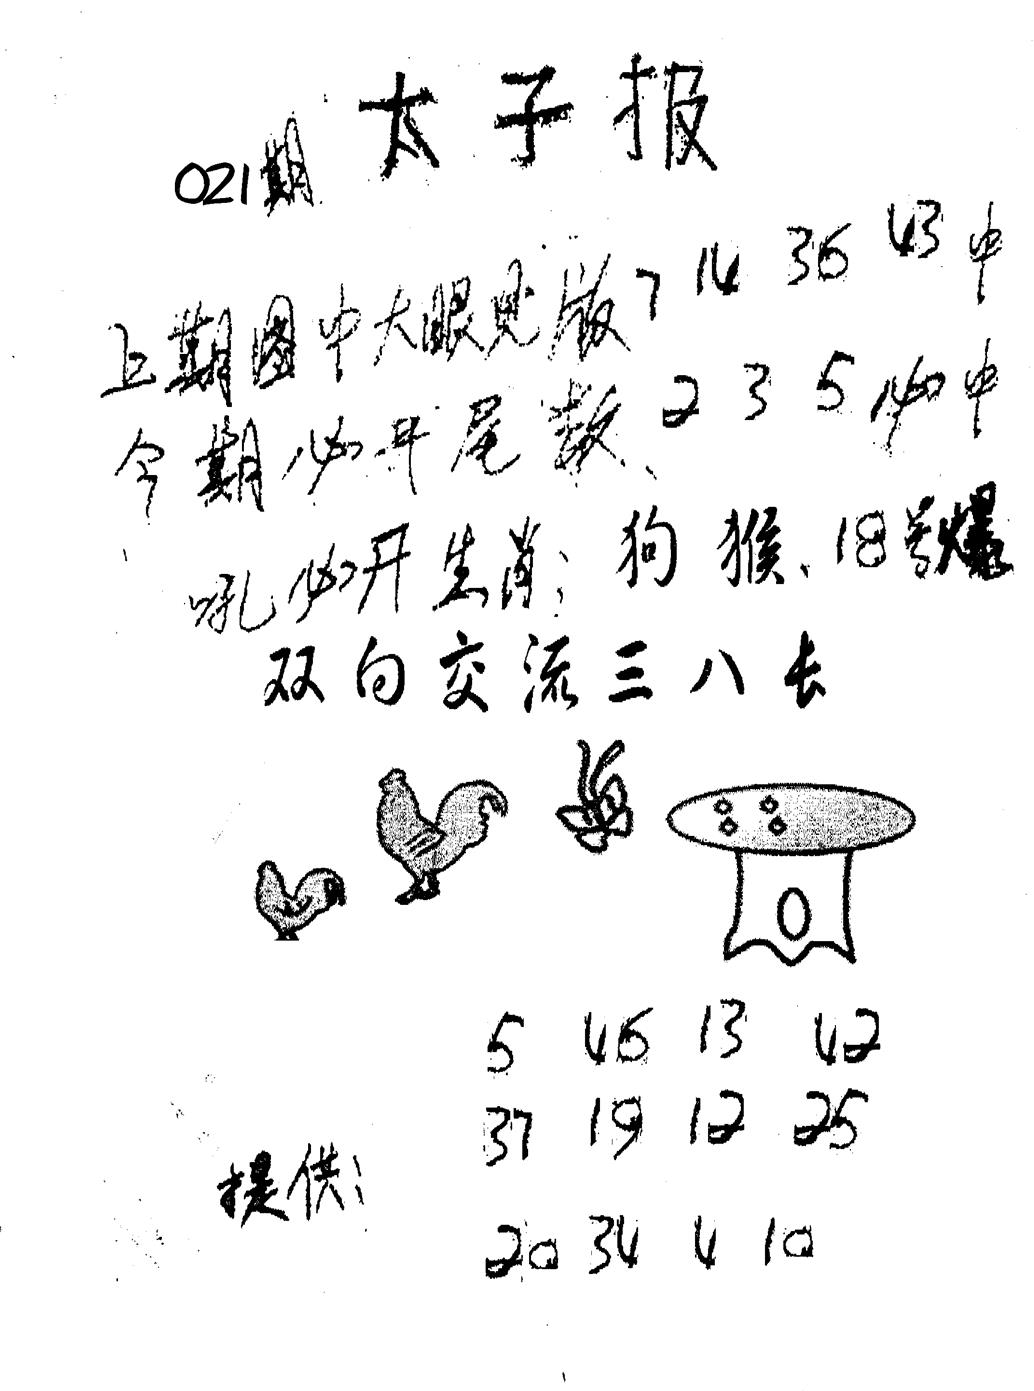 太子报
021期
上期图中大眼见版7 14 36 43中
今期必开尾数、2 3 5必中
吼必开生肖：狗 猴、18号爆
双向交流三八长
0
5 46 13 42
37 19 12 25
提供：
20 34 4 10